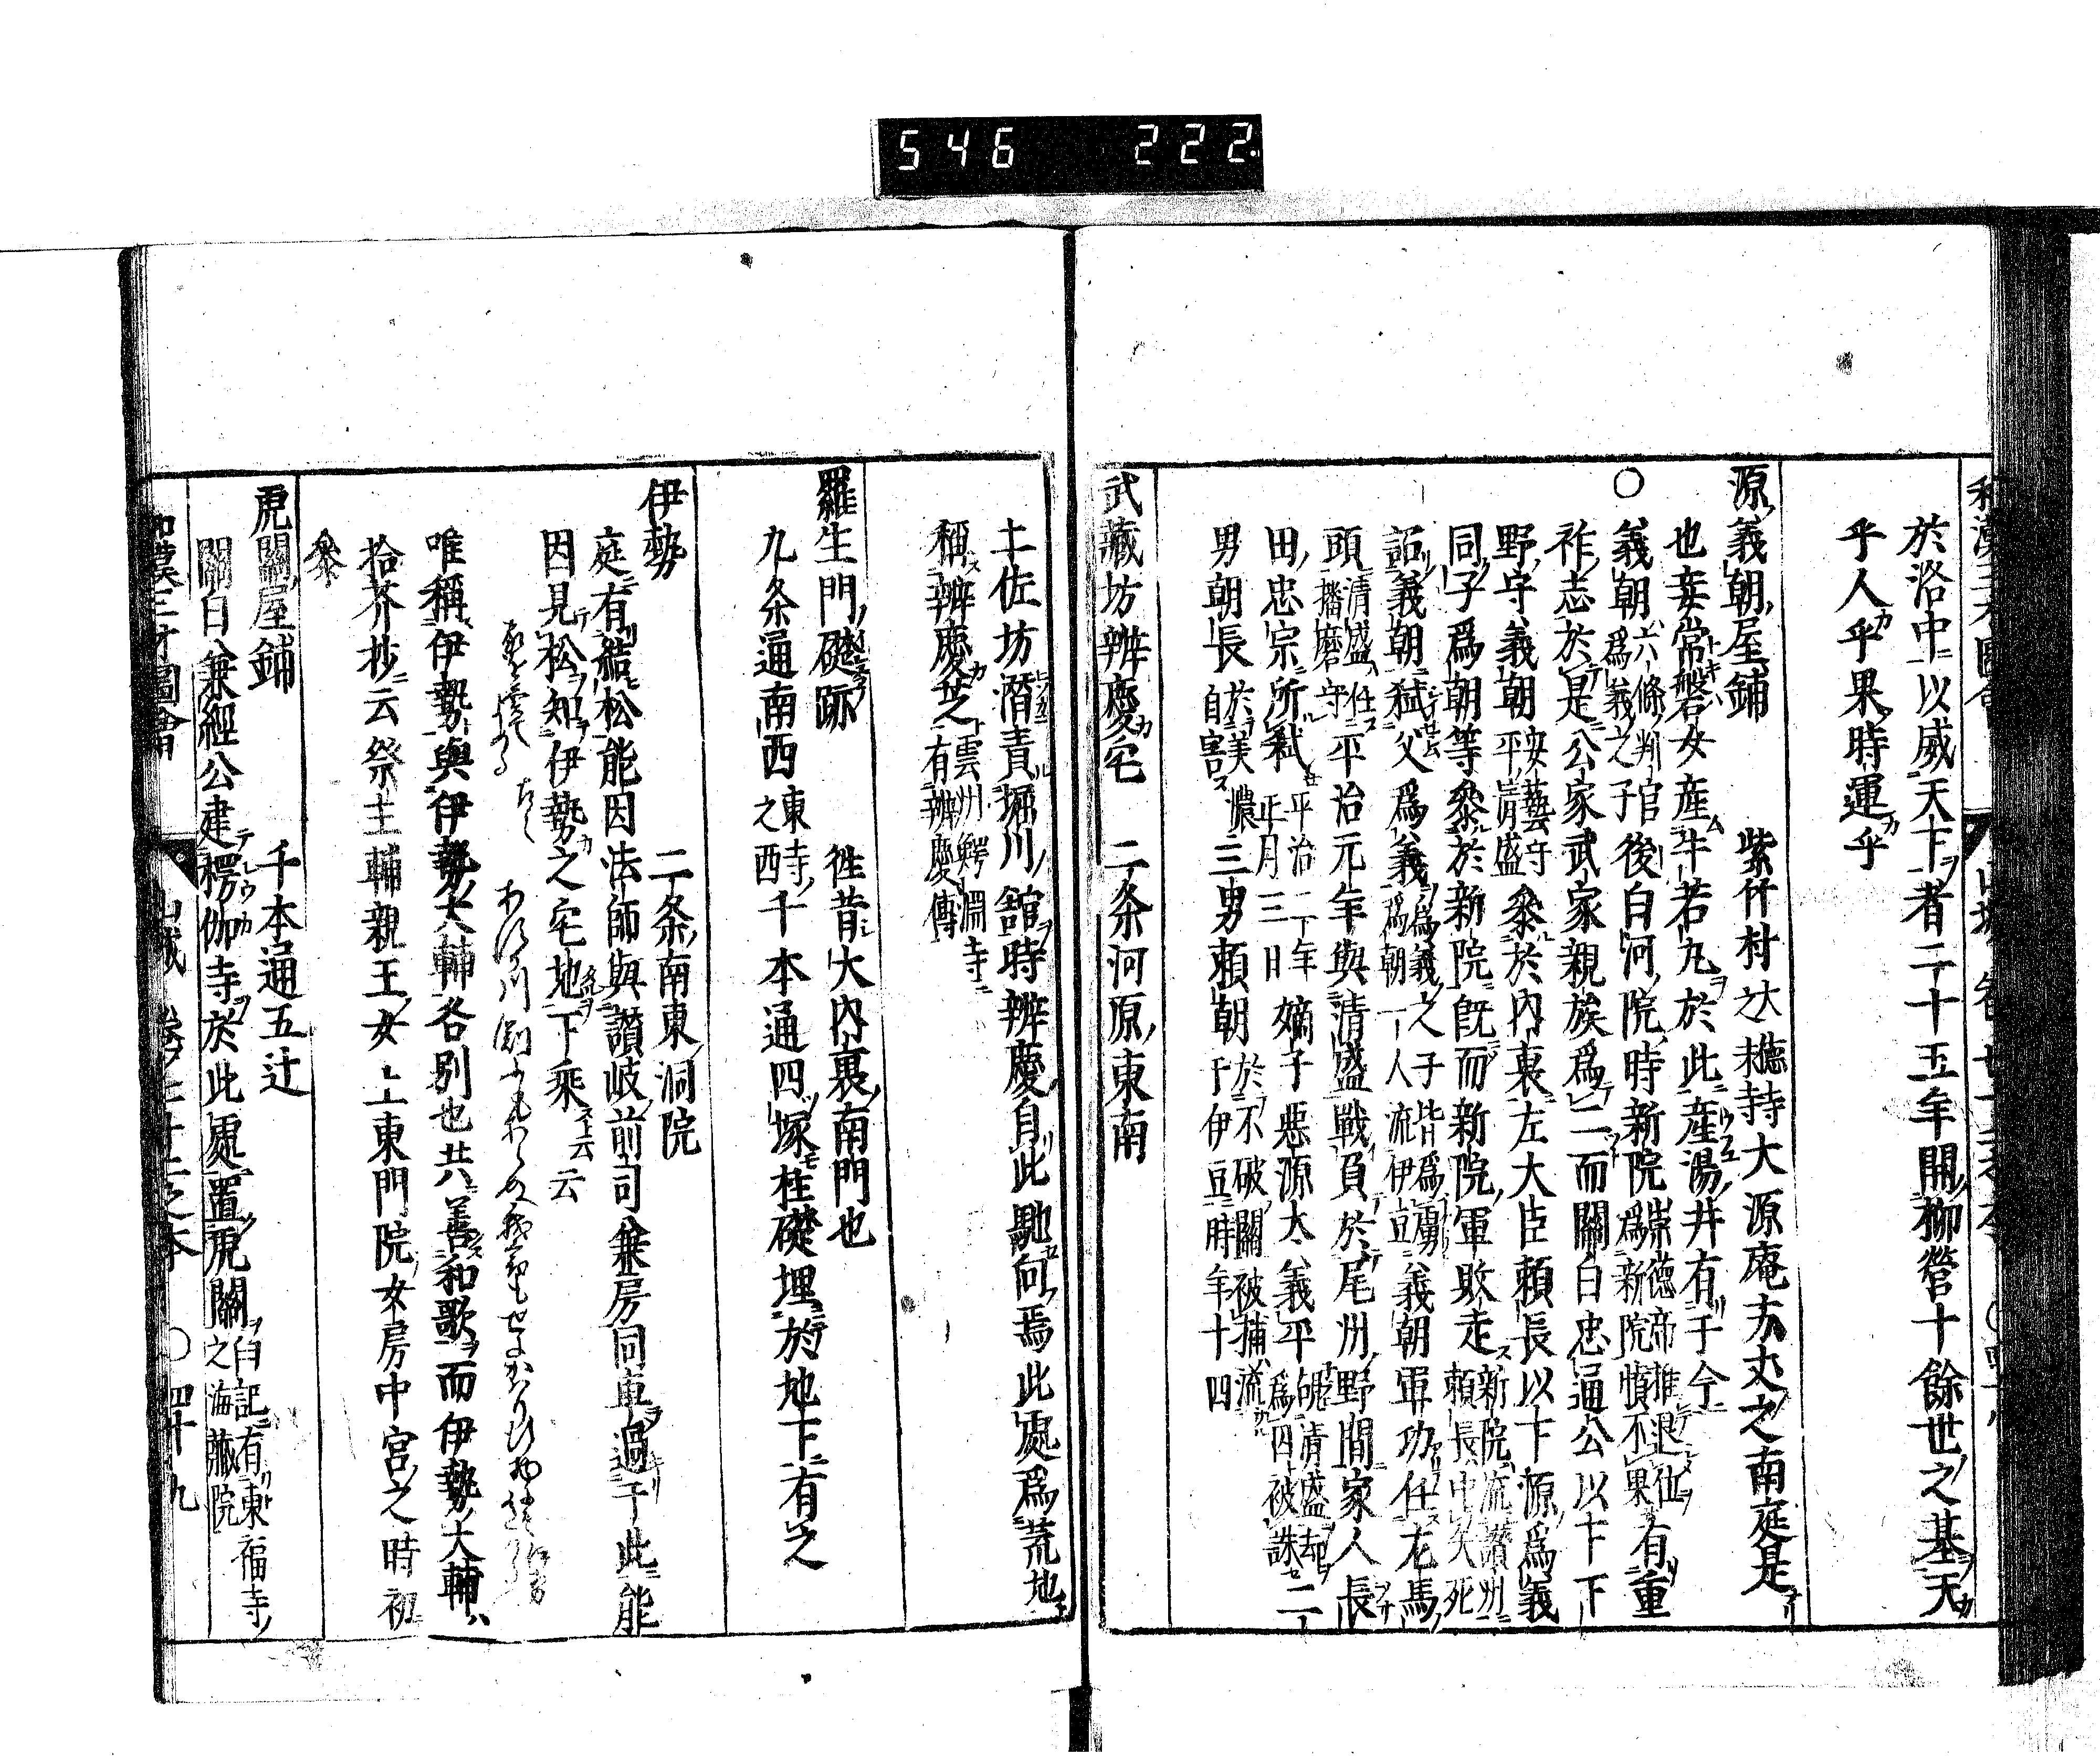 546 222
於洛中以威天下者二十五年開柳營十餘世之基天
乎人乎果時運乎
源義朝屋鋪 紫竹村大德寺大源庵方丈之南庭是
也妾常磐女産牛若丸於此産湯井有于今
○義朝六條判官爲義之子後白河院時新院崇德帝推退位爲新院憤不果有重
祚志於是公家武家親族爲二而關白忠通公以下下
野守義朝安藝守平淸盛參於內裏左大臣賴長以下源爲義
同子爲朝等參於新院旣而新院軍敗走新院流讃州賴長中矢死
詔義朝弑父爲義爲義之子皆爲虜爲朝一人流伊豆義朝軍功任左馬
頭淸盛任播磨守平治元年與淸盛戰負於尾州野間家人長
田忠宗所弑平治二年正月三日嫡子惡源太義平淸盛却爲囚被誅二
男朝長於美濃自害三男賴朝於不破關被捕流于伊豆時年十四
武藏坊辨慶宅 二条河原東南
土佐坊潛靑堀川舘時辨慶自此馳向焉此處爲荒地
稱辨慶芝雲州鰐淵寺有辨慶傳
羅生門礎跡 徃昔大內裏南門也
九条通南西東寺之西千本通四塚柱礎埋於地下有之
伊勢 二条南東洞院
庭有結松能因法師與讃岐前司兼房同車過于此能
因見松知伊勢之宅地下乘云云
唯稱伊勢與伊勢大輔各別也共善和歌而伊勢大輔
拾芥抄云祭主輔親王女上東門院女房中宮之時初
參
虎關屋鋪 千本通五辻
關白兼經公建楞伽寺於此處置虎關白記有東福寺之海藏院
和漢三才圖會 山城 卷之七十二之本 ○四十九